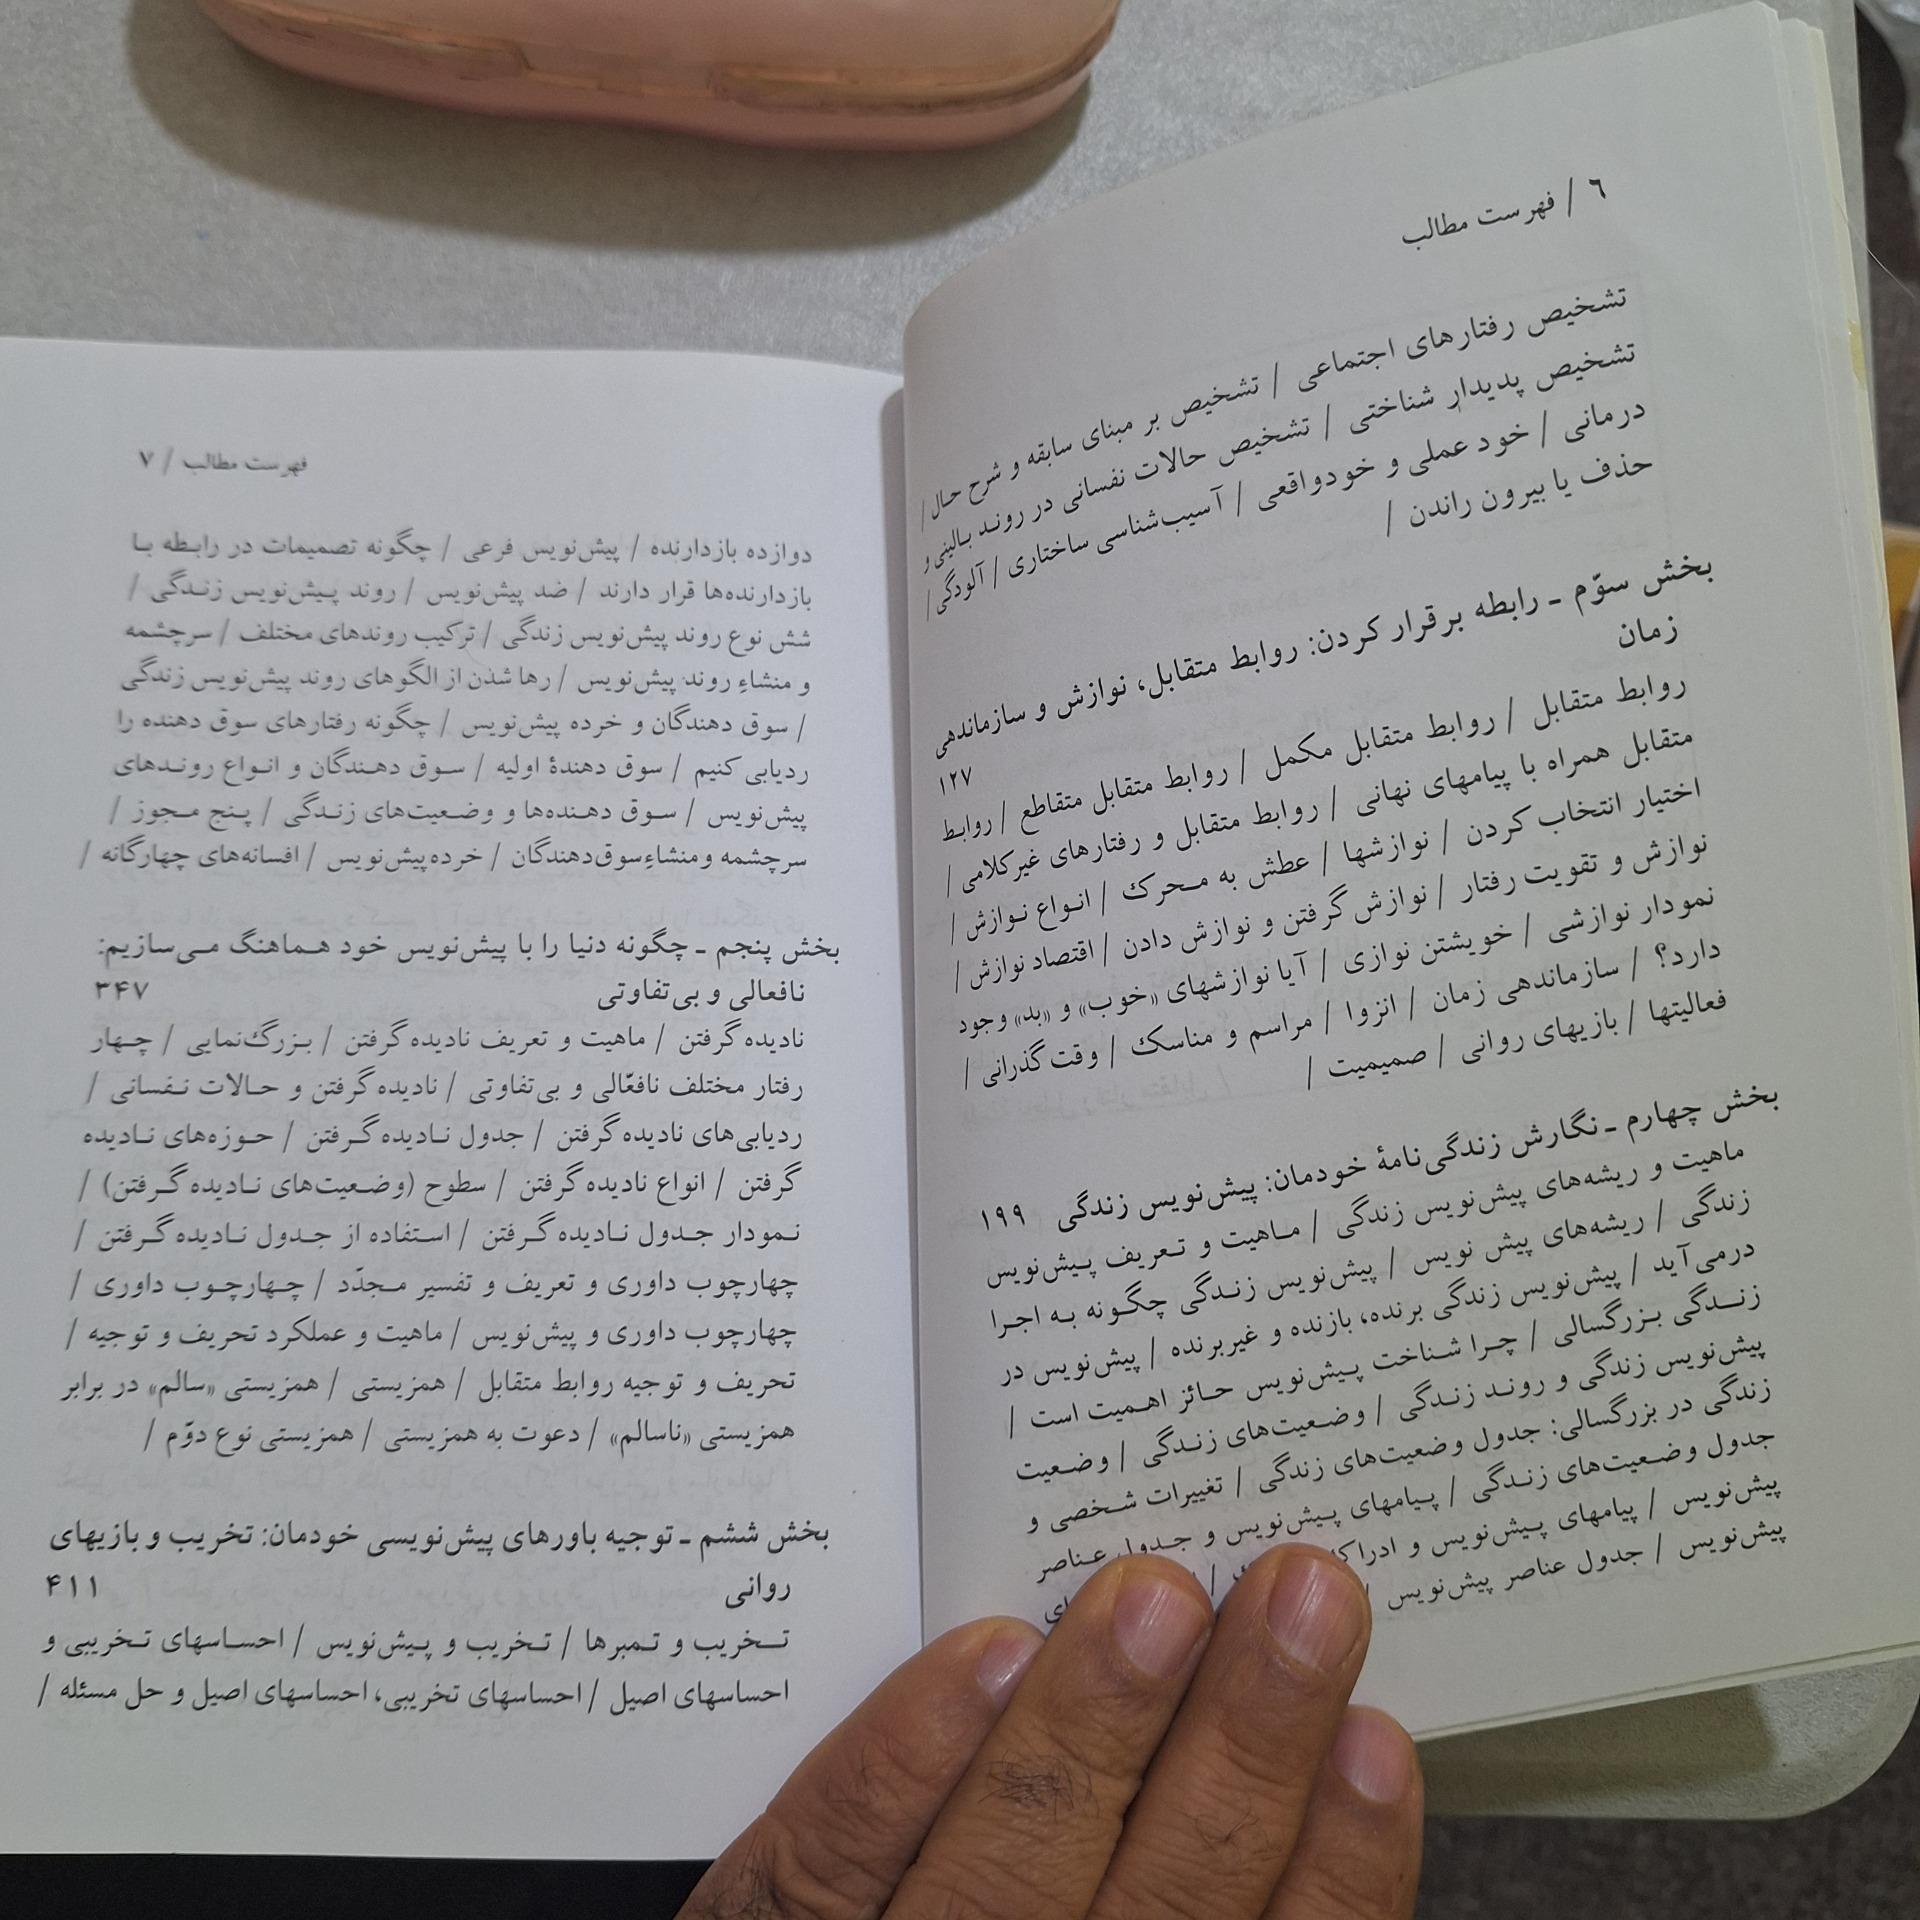 ٦ / فهرست مطالب
تشخیص رفتارهای اجتماعی / تشخیص بر مبنای سابقه و شرح حال /
تشخیص پدیدار شناختی / تشخیص حالات نفسانی در روند بالینی و
درمانی / خود عملی و خودواقعی / آسیب‌شناسی ساختاری / آلودگی /
حذف یا بیرون راندن /
بخش سوّم ـ رابطه برقرار کردن: روابط متقابل، نوازش و سازماندهی
زمان ۱۲۷
روابط متقابل / روابط متقابل مکمل / روابط متقابل متقاطع / روابط
متقابل همراه با پیامهای نهانی / روابط متقابل و رفتارهای غیرکلامی /
اختیار انتخاب کردن / نوازشها / عطش به محرک / انواع نوازش /
نوازش و تقویت رفتار / نوازش گرفتن و نوازش دادن / اقتصاد نوازش /
نمودار نوازشی / خویشتن نوازی / آیا نوازشهای «خوب» و «بد» وجود
دارد؟ / سازماندهی زمان / انزوا / مراسم و مناسک / وقت گذرانی /
فعالیتها / بازیهای روانی / صمیمیت /
بخش چهارم ـ نگارش زندگی‌نامهٔ خودمان: پیش‌نویس زندگی ۱۹۹
ماهیت و ریشه‌های پیش‌نویس زندگی / ماهیت و تعریف پیش‌نویس
زندگی / ریشه‌های پیش نویس / پیش‌نویس زندگی چگونه به اجرا
درمی‌آید / پیش‌نویس زندگی برنده، بازنده و غیربرنده / پیش‌نویس در
زندگی بزرگسالی / چرا شناخت پیش‌نویس حائز اهمیت است /
پیش‌نویس زندگی و روند زندگی / وضعیت‌های زندگی / وضعیت
زندگی در بزرگسالی: جدول وضعیت‌های زندگی / تغییرات شخصی و
جدول وضعیت‌های زندگی / پیامهای پیش‌نویس و جدول عناصر
پیش‌نویس / پیامهای پیش‌نویس و
پیش‌نویس / جدول عناصر پیش‌نویس /
فهرست مطالب / ۷
دوازده بازدارنده / پیش‌نویس فرعی / چگونه تصمیمات در رابطه با
بازدارنده‌ها قرار دارند / ضد پیش‌نویس / روند پیش‌نویس زندگی /
شش نوع روند پیش‌نویس زندگی / ترکیب روندهای مختلف / سرچشمه
و منشاءِ روند پیش‌نویس / رها شدن از الگوهای روند پیش‌نویس زندگی
/ سوق دهندگان و خرده پیش‌نویس / چگونه رفتارهای سوق دهنده را
ردیابی کنیم / سوق دهندهٔ اولیه / سوق دهندگان و انواع روندهای
پیش‌نویس / سوق دهنده‌ها و وضعیت‌های زندگی / پنج مجوز /
سرچشمه و منشاءِ سوق‌دهندگان / خرده پیش‌نویس / افسانه‌های چهارگانه /
بخش پنجم ـ چگونه دنیا را با پیش‌نویس خود هماهنگ می‌سازیم:
نافعالی و بی‌تفاوتی ۳۴۷
نادیده گرفتن / ماهیت و تعریف نادیده گرفتن / بزرگ‌نمایی / چهار
رفتار مختلف نافعّالی و بی‌تفاوتی / نادیده گرفتن و حالات نفسانی /
ردیابی‌های نادیده گرفتن / جدول نادیده گرفتن / حوزه‌های نادیده
گرفتن / انواع نادیده گرفتن / سطوح (وضعیت‌های نادیده گرفتن) /
نمودار جدول نادیده گرفتن / استفاده از جدول نادیده گرفتن /
چهارچوب داوری و تعریف و تفسیر مجدّد / چهارچوب داوری /
چهارچوب داوری و پیش‌نویس / ماهیت و عملکرد تحریف و توجیه /
تحریف و توجیه روابط متقابل / همزیستی / همزیستی «سالم» در برابر
همزیستی «ناسالم» / دعوت به همزیستی / همزیستی نوع دوّم /
بخش ششم ـ توجیه باورهای پیش‌نویسی خودمان: تخریب و بازیهای
روانی ۴۱۱
تخریب و تمبرها / تخریب و پیش‌نویس / احساسهای تخریبی و
احساسهای اصیل / احساسهای تخریبی، احساسهای اصیل و حل مسئله /